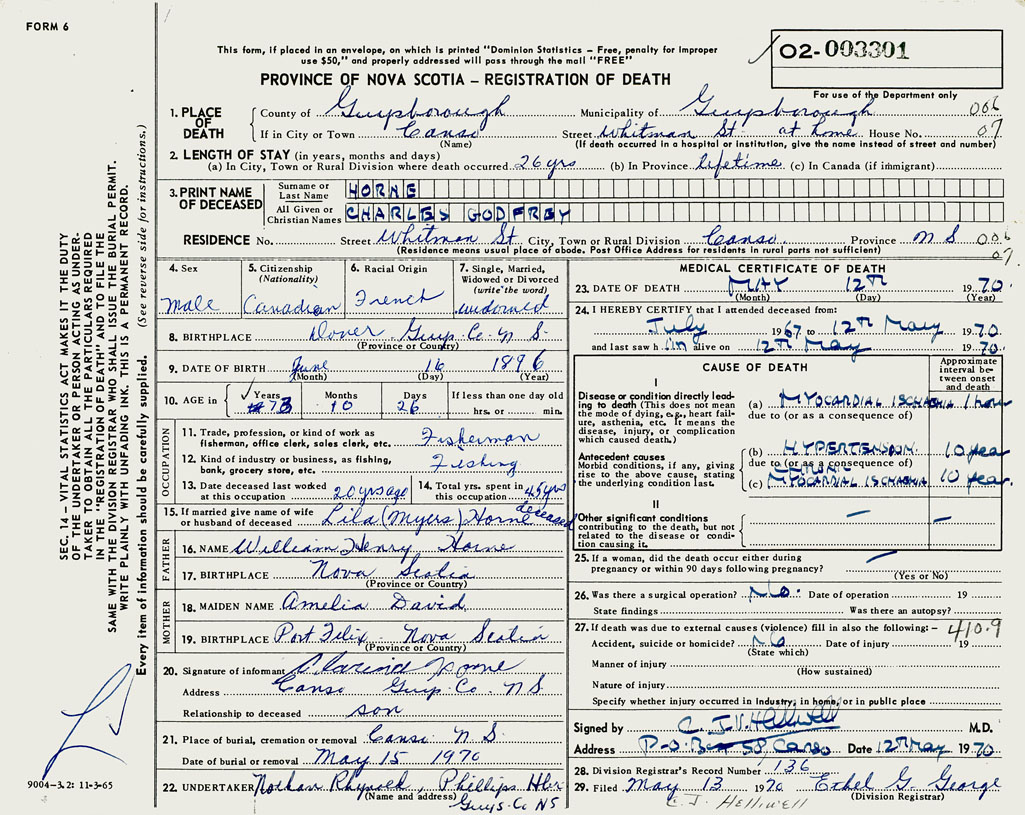 FORM 6
This form, if placed in an envelope, on which is printed "Dominion Statistics – Free, penalty for improper
use $50," and properly addressed will pass through the mail "FREE"
02-003301
PROVINCE OF NOVA SCOTIA – REGISTRATION OF DEATH
For use of the Department only
1. PLACE OF DEATH County of Guysborough Municipality of Guysborough 006
If in City or Town Canso Street Whitman St at home House No. 07
(Name) (If death occurred in a hospital or institution, give the name instead of street and number)
2. LENGTH OF STAY (in years, months and days)
(a) In City, Town or Rural Division where death occurred 26 yrs (b) In Province lifetime (c) In Canada (if immigrant)
3. PRINT NAME OF DECEASED Surname or Last Name HORNE
All Given or Christian Names CHARLES GODFREY
RESIDENCE No. Street Whitman St. City, Town or Rural Division Canso. Province N S 006
(Residence means usual place of abode. Post Office Address for residents in rural parts not sufficient) 07
4. Sex Male
5. Citizenship (Nationality) Canadian
6. Racial Origin French
7. Single, Married, Widowed or Divorced (write the word) widowed
8. BIRTHPLACE Dover Guys. Co. N S.
(Province or Country)
9. DATE OF BIRTH June 16 1896
(Month) (Day) (Year)
10. AGE in Years 73 Months 10 Days 26 If less than one day old
hrs. or min.
OCCUPATION
11. Trade, profession, or kind of work as
fisherman, office clerk, sales clerk, etc. Fisherman
12. Kind of industry or business, as fishing,
bank, grocery store, etc. Fishing
13. Date deceased last worked at this occupation 20 yrs ago
14. Total yrs. spent in this occupation 45 yrs
15. If married give name of wife
or husband of deceased Lila (Myers) Horne deceased
FATHER
16. NAME William Henry Horne
17. BIRTHPLACE Nova Scotia
(Province or Country)
MOTHER
18. MAIDEN NAME Amelia David
19. BIRTHPLACE Port Felix - Nova Scotia
(Province or Country)
20. Signature of informant Clarence Horne
Address Canso Guys. Co. N S.
Relationship to deceased son
21. Place of burial, cremation or removal Canso N. S.
Date of burial or removal May 15 1970
22. UNDERTAKER Nathan Phillips Hbr
(Name and address) Guys. Co NS
MEDICAL CERTIFICATE OF DEATH
23. DATE OF DEATH MAY 12TH 1970.
(Month) (Day) (Year)
24. I HEREBY CERTIFY that I attended deceased from:
July 1967 to 12TH May 1970.
and last saw him alive on 12TH May 1970.
CAUSE OF DEATH
Approximate interval between onset and death
I
Disease or condition directly leading to death (This does not mean
the mode of dying, e.g., heart failure, asthenia, etc. It means the
disease, injury, or complication
which caused death.)
(a) MYOCARDIAL ISCHAEMIA 1 hour
due to (or as a consequence of)
Antecedent causes
Morbid conditions, if any, giving
rise to the above cause, stating
the underlying condition last.
(b) HYPERTENSION. 10 year
due to (or as a consequence of)
(c) MYOCARDIAL ISCHAEMIA 10 year.
II
Other significant conditions
contributing to the death, but not
related to the disease or condition causing it.
25. If a woman, did the death occur either during
pregnancy or within 90 days following pregnancy?
(Yes or No)
26. Was there a surgical operation? No. Date of operation 19
State findings Was there an autopsy?
27. If death was due to external causes (violence) fill in also the following: – 410.9
Accident, suicide or homicide? No Date of injury 19
(State which)
Manner of injury
(How sustained)
Nature of injury
Specify whether injury occurred in Industry, in home, or in public place
Signed by C. J. V. Helliwell M.D.
Address P-O Box 58 Canso Date 12TH May 1970
28. Division Registrar's Record Number 136
29. Filed May 13 1970 Ethel G. George
C. J. HELLIWELL (Division Registrar)
SEC. 14 – VITAL STATISTICS ACT MAKES IT THE DUTY
OF THE UNDERTAKER OR PERSON ACTING AS UNDER-
TAKER TO OBTAIN ALL THE PARTICULARS REQUIRED
IN THE "REGISTRATION OF DEATH" AND TO FILE THE
SAME WITH THE DIVISION REGISTRAR WHO SHALL ISSUE THE BURIAL PERMIT.
WRITE PLAINLY WITH UNFADING INK. THIS IS A PERMANENT RECORD.
Every item of information should be carefully supplied. (See reverse side for instructions.)
9004-3.2: 11-3-65